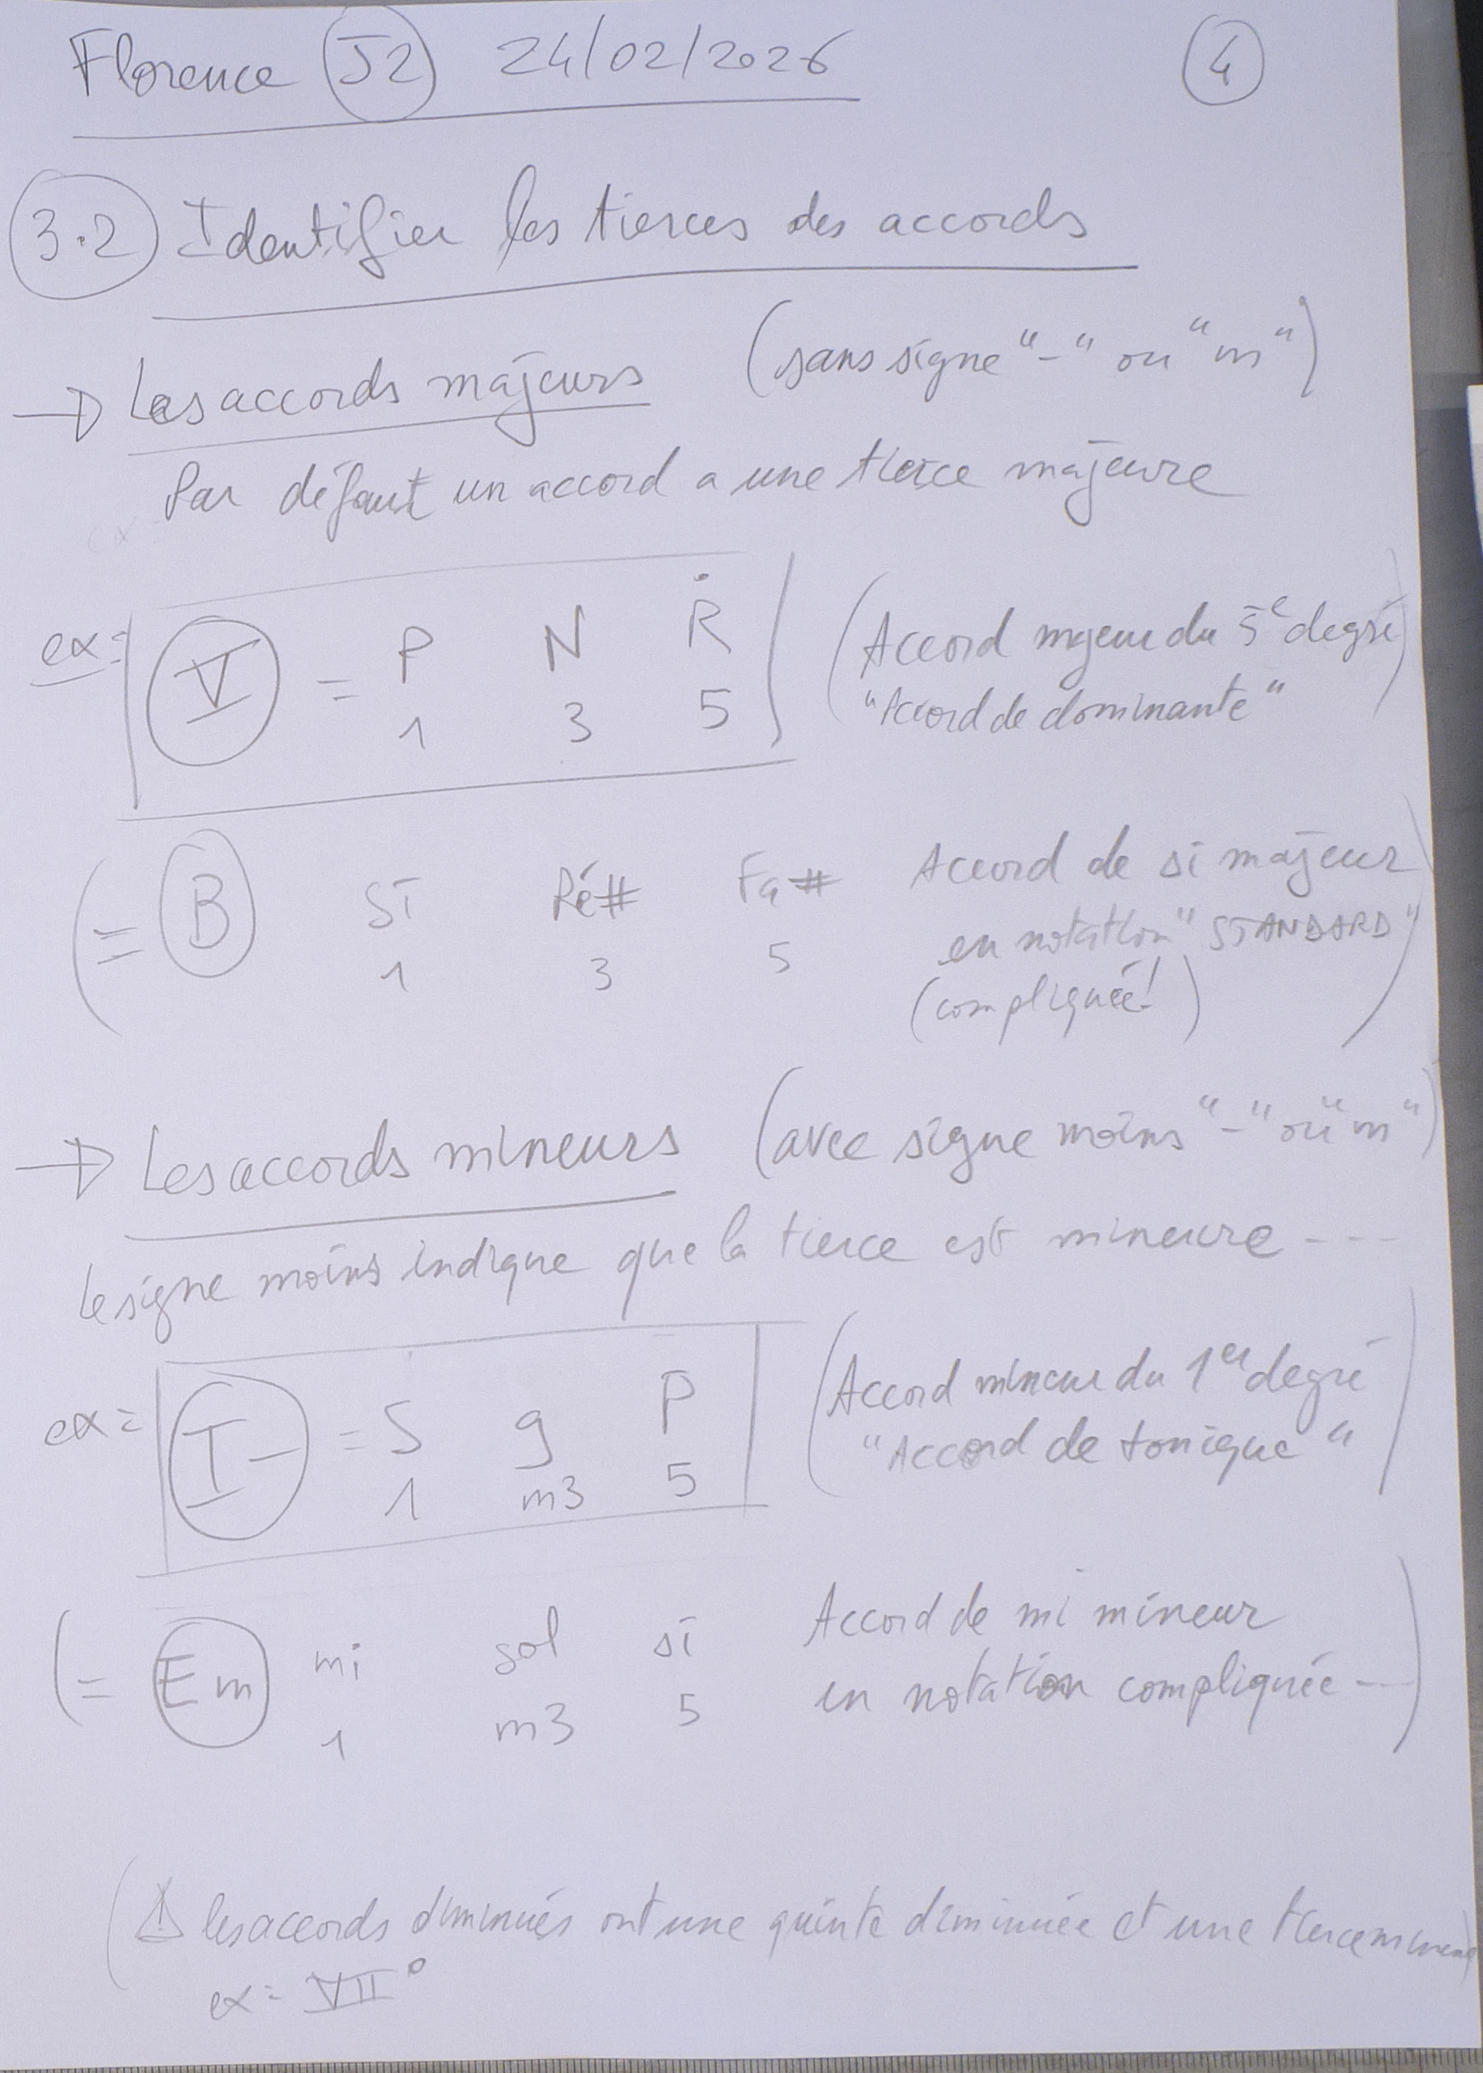 Florence J2 24/02/2026 4
3.2 Identifier les tierces des accords
→ Les accords majeurs (sans signe "-" ou "m")
Par défaut un accord a une tierce majeure
ex: V = P N Ṙ (Accord mjeur du 5e degré
1 3 5 "Accord de dominante"
(= B Si Ré# Fa# Accord de si majeur
1 3 5 en notation "STANDARD"
(compliquée!)
→ Les accords mineurs (avec signe moins "-" ou "m")
Le signe moins indique que la tierce est mineure ---
ex= I- = S g P (Accord mineur du 1er degré
1 m3 5 "Accord de tonique")
(= Em mi sol si Accord de mi mineur
1 m3 5 en notation compliquée --)
(⚠ les accords diminués ont une quinte diminuée et une tierce mineure
ex= VII°